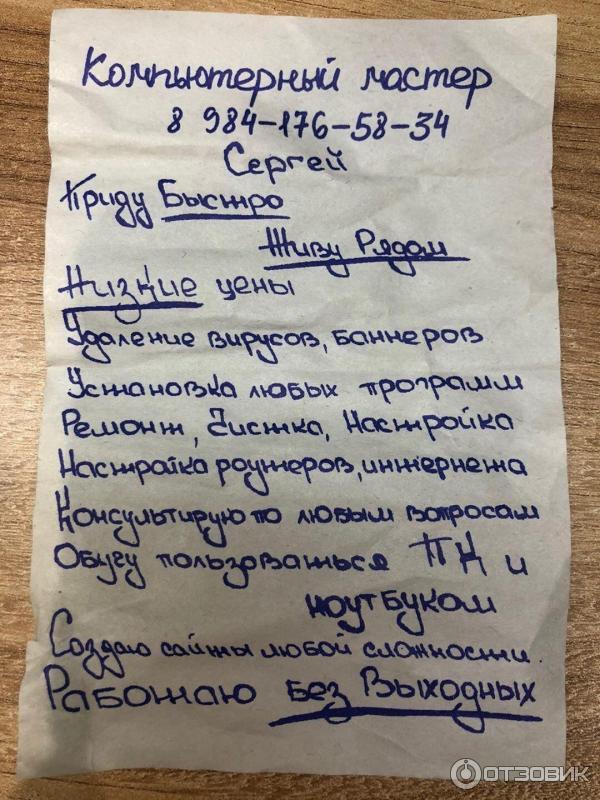 Компьютерный мастер
8 984-176-58-34
Сергей
Приду Быстро
Живу Рядом
Низкие цены
Удаление вирусов, баннеров
Установка любых программ
Ремонт, Чистка, Настройка
Настрайка роутеров, интернета
Консультирую по любым вопросам
Обучу пользоваться ПК и
ноутбуком
Создаю сайты любой сложности.
Работаю без Выходных
ОТЗОВИК